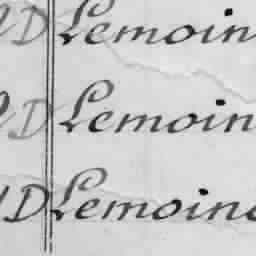 D Lemoin
D Lemoin
D Lemoine